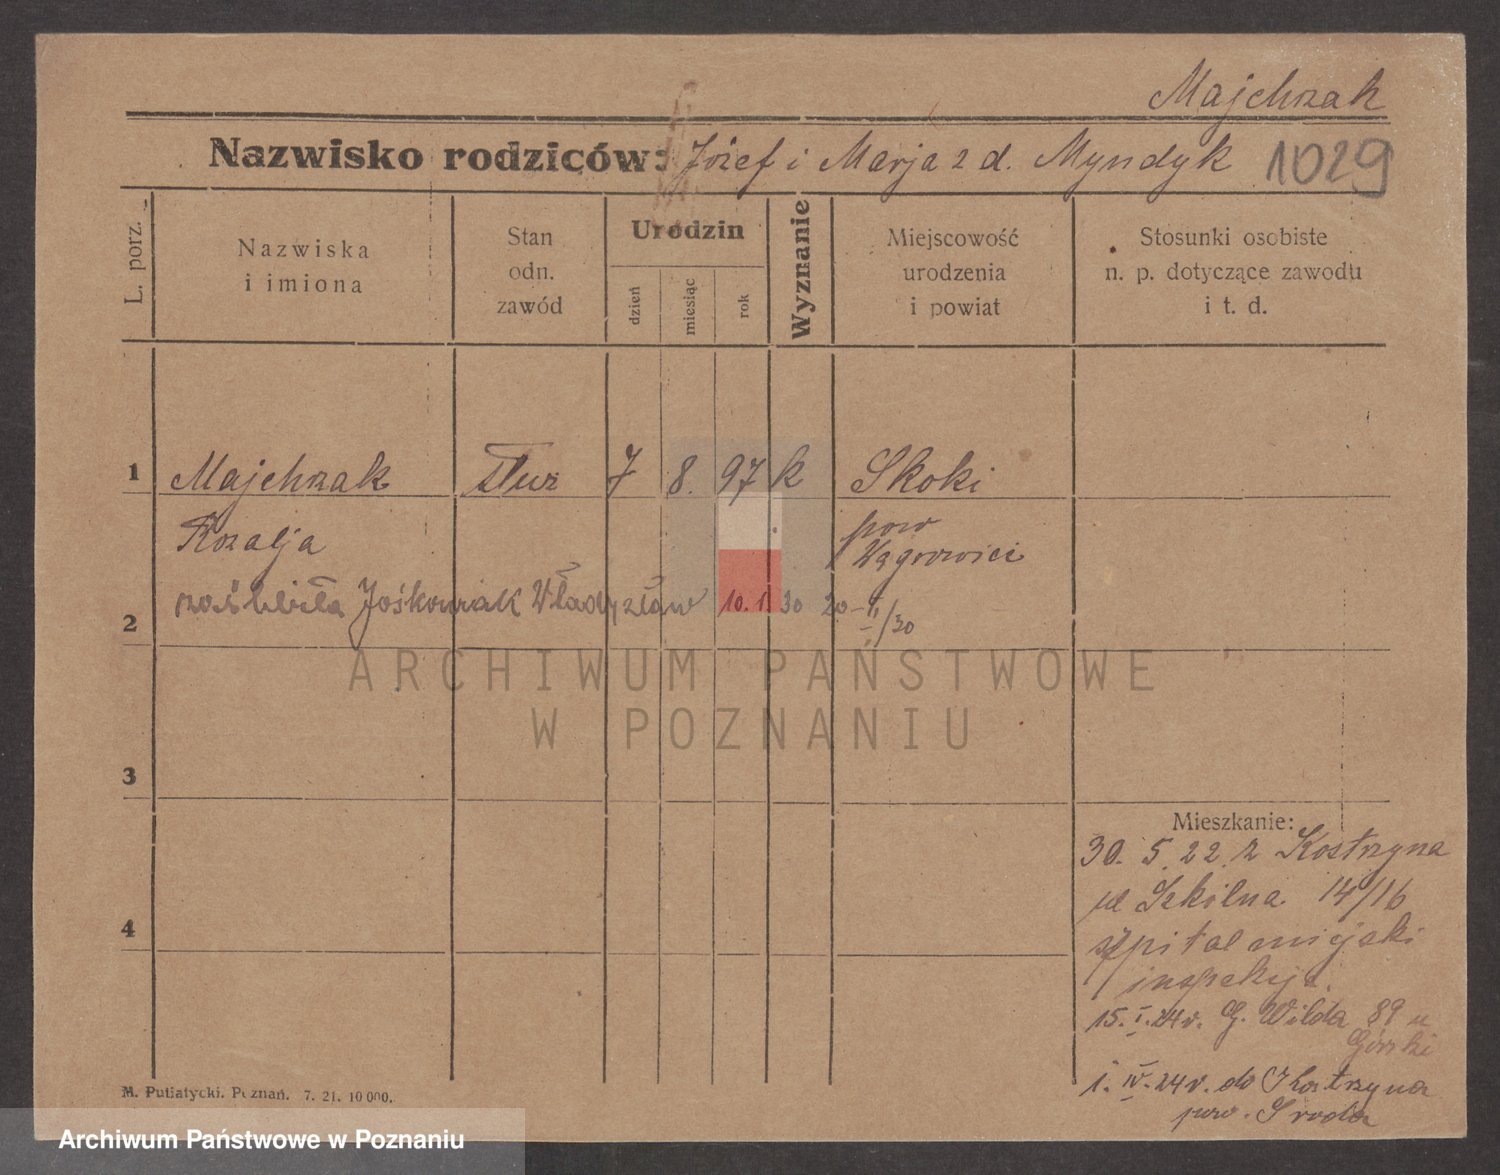 Majchrzak
Nazwisko rodziców: Józef i Marja z d. Myndyk 1029
L. porz.
Nazwiska
i imiona
Stan
odn.
zawód
Urodzin
dzień
miesiąc
rok
Wyznanie
Miejscowość
urodzenia
i powiat
Stosunki osobiste
n. p. dotyczące zawodu
i t. d.
1 Majchrzak służ 7 8. 97 k Skoki
Rozalja pow
Wągrowiec
2 zaślubiła Jośkowiak Władysław 10.1.30 20-II/30
ARCHIWUM PAŃSTWOWE
W POZNANIU
3
Mieszkanie:
30. 5. 22 z Kostrzyna
ul Szkólna 14/16
4
szpital miejski
inspekcja.
15. I. 24 r. G. Wilda 89 u
Górski
1. IV. 24 r. do Kostrzyna
pow. Sroda
M. Putiatycki. Poznań. 7. 21. 10 000.
Archiwum Państwowe w Poznaniu